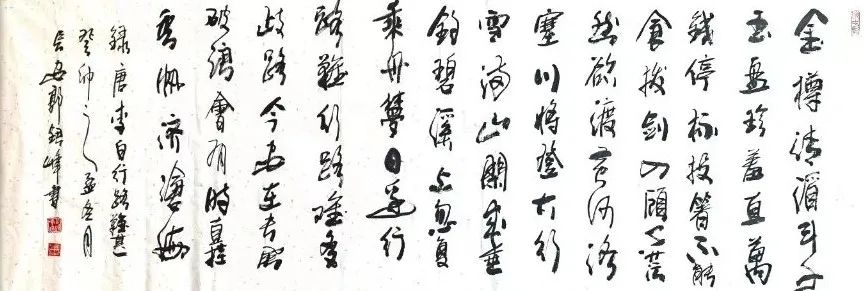 金樽清酒斗千
玉盤珍羞直萬
錢停杯投箸不能
食拔劍四顧心茫
然欲渡黄河冰
塞川將登太行
雪满山閑来垂
釣碧溪上忽復
乘舟夢日邊行
路難行路難多
歧路今安在長風
破浪會有時直挂
雲帆濟滄海
錄唐李白行路難其一
癸卯之孟冬月
長安郭峰書